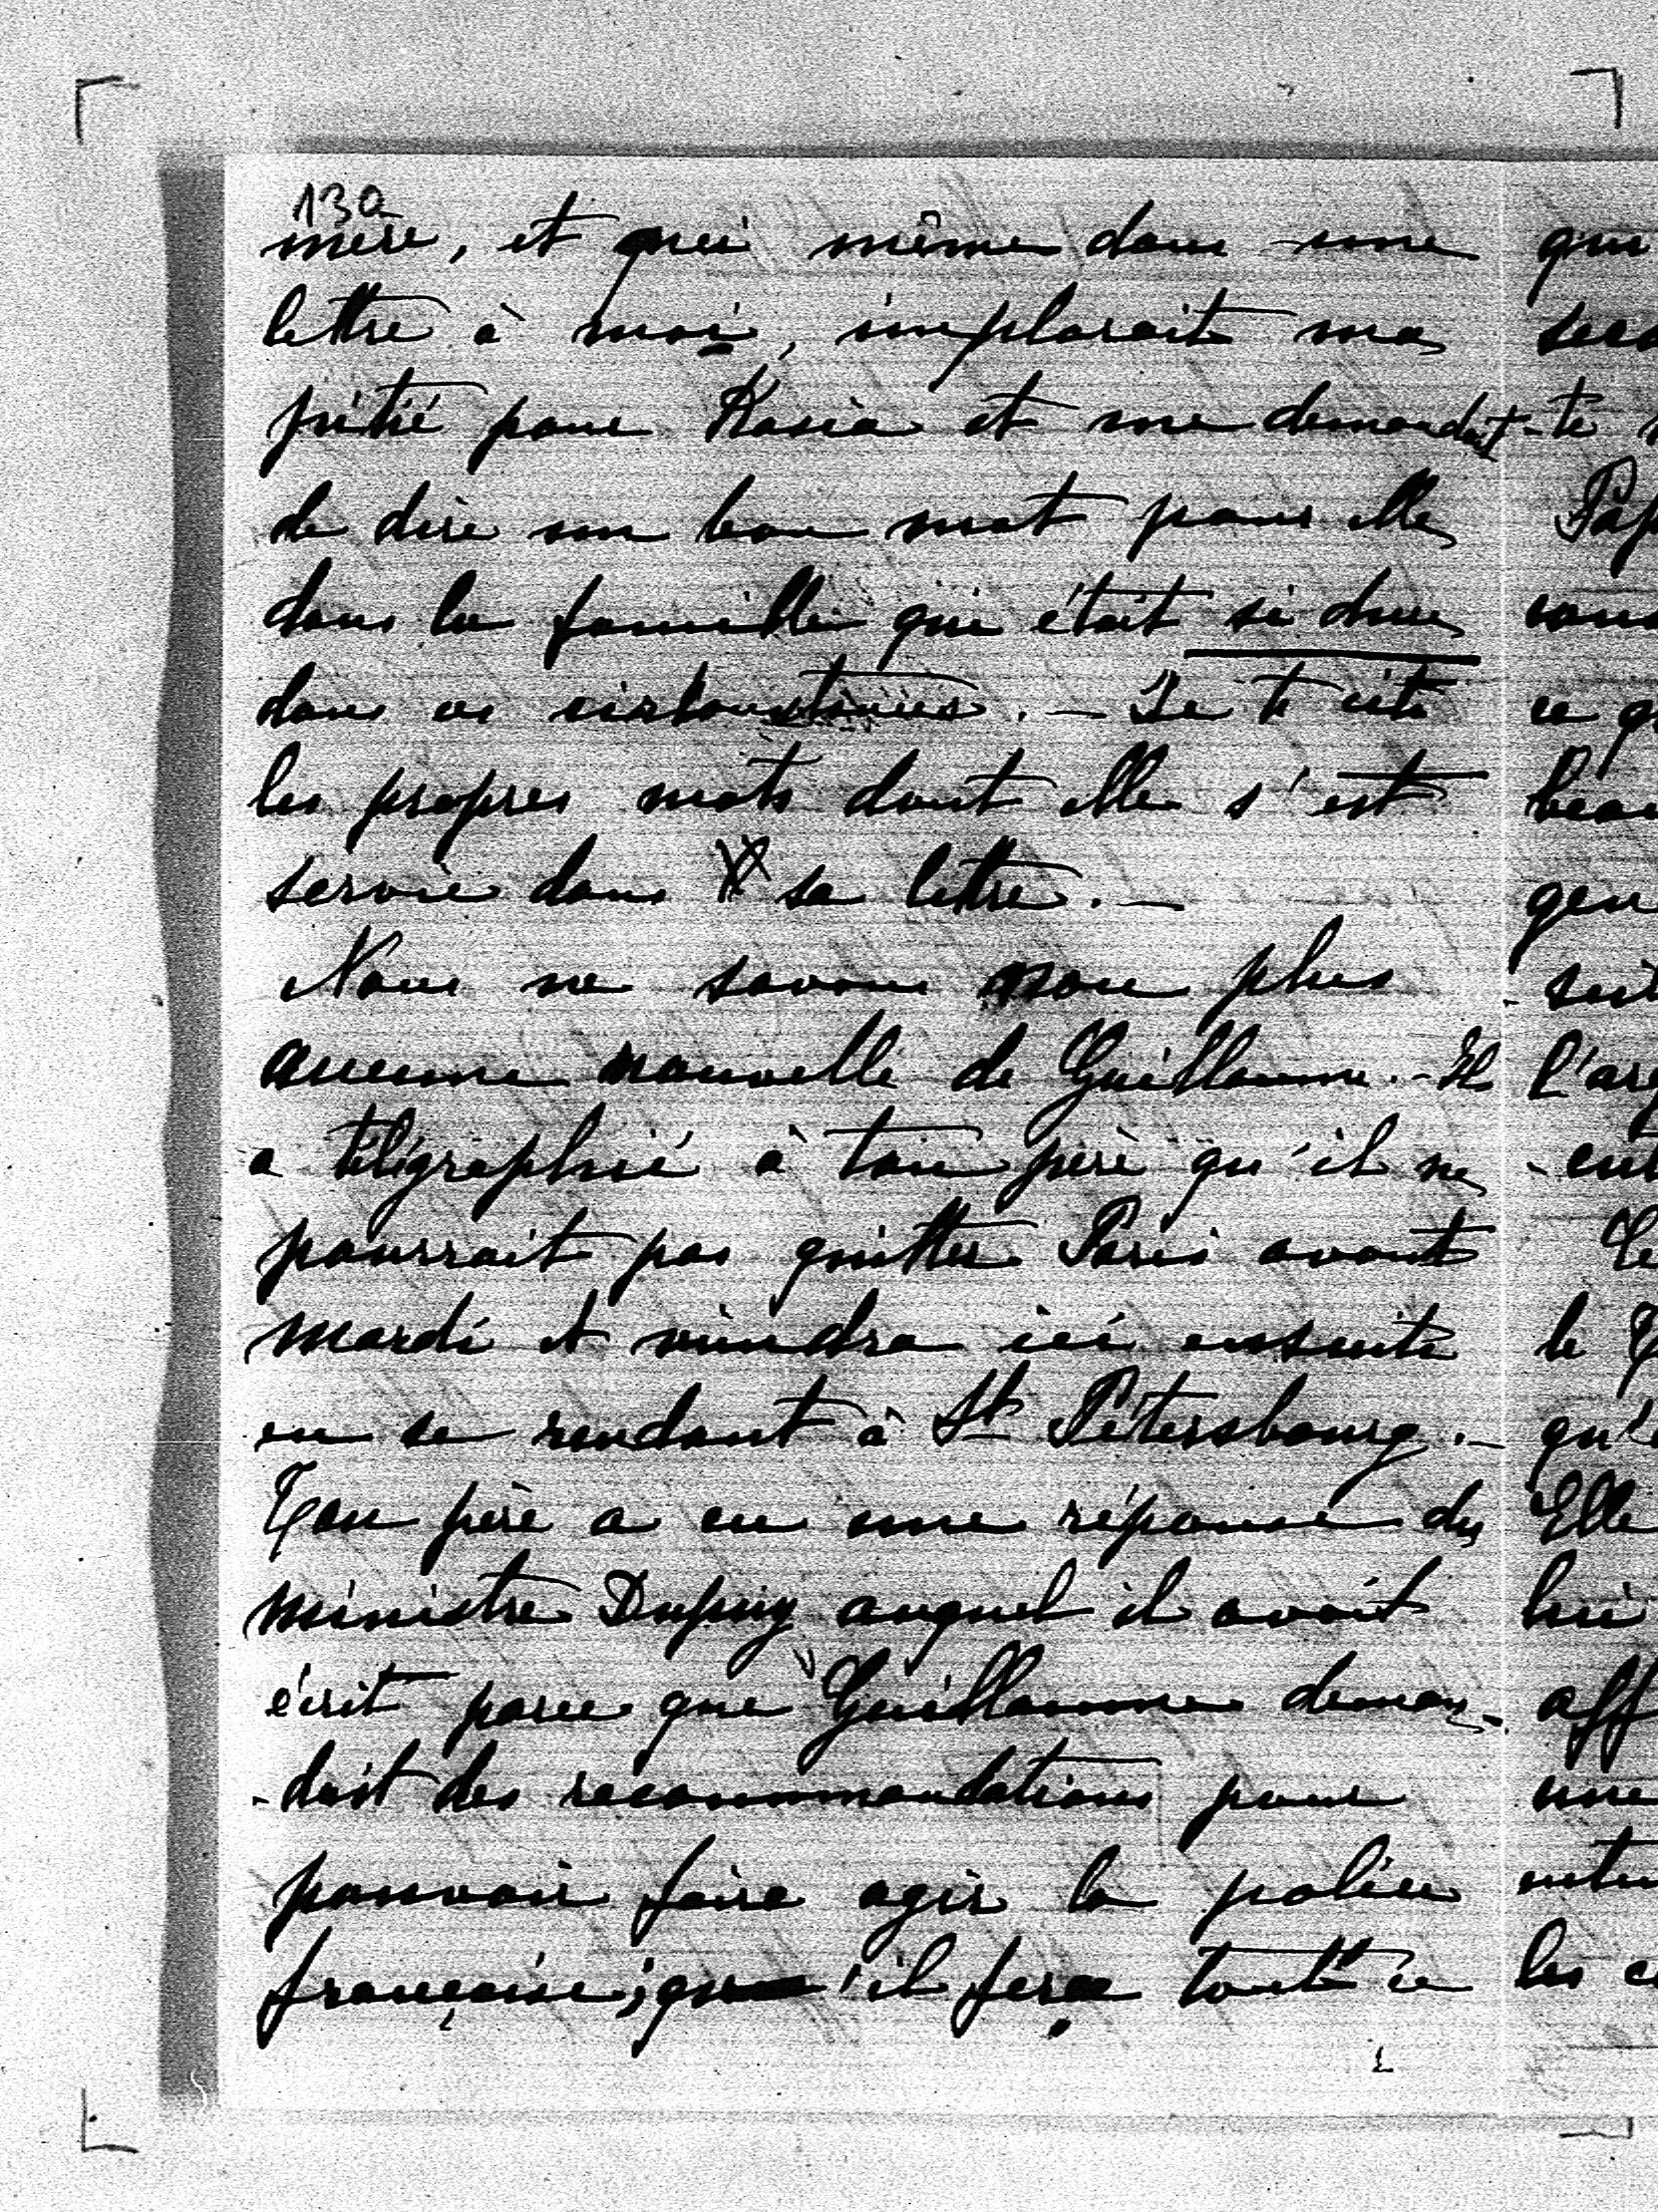 130
mère, et qui même dans une
lettre à moi, implorait ma
pitié pour Kasia et me demandait
de dire un bon mot pour elle
dans la famille qui était si dure
dans ces circonstances. — Je te cite
les propres mots dont elle s'est
servie dans sa lettre. —
Nous ne savons non plus
aucune nouvelle de Guillaume. - Il
a télégraphié à ton père qu'il ne
pourrait pas quitter Paris avant
mardi et viendra ici ensuite
en se rendant à St Pétersbourg. —
Ton père a eu une réponse du
ministre Dupuy auquel il avait
écrit parce que Guillaume deman-
-dait des recommandations pour
pouvoir faire agir la police
française; qu'il fera tout ce
qui
-te
ce q
l'arg
le
qu'
Elle
lui
aff
une